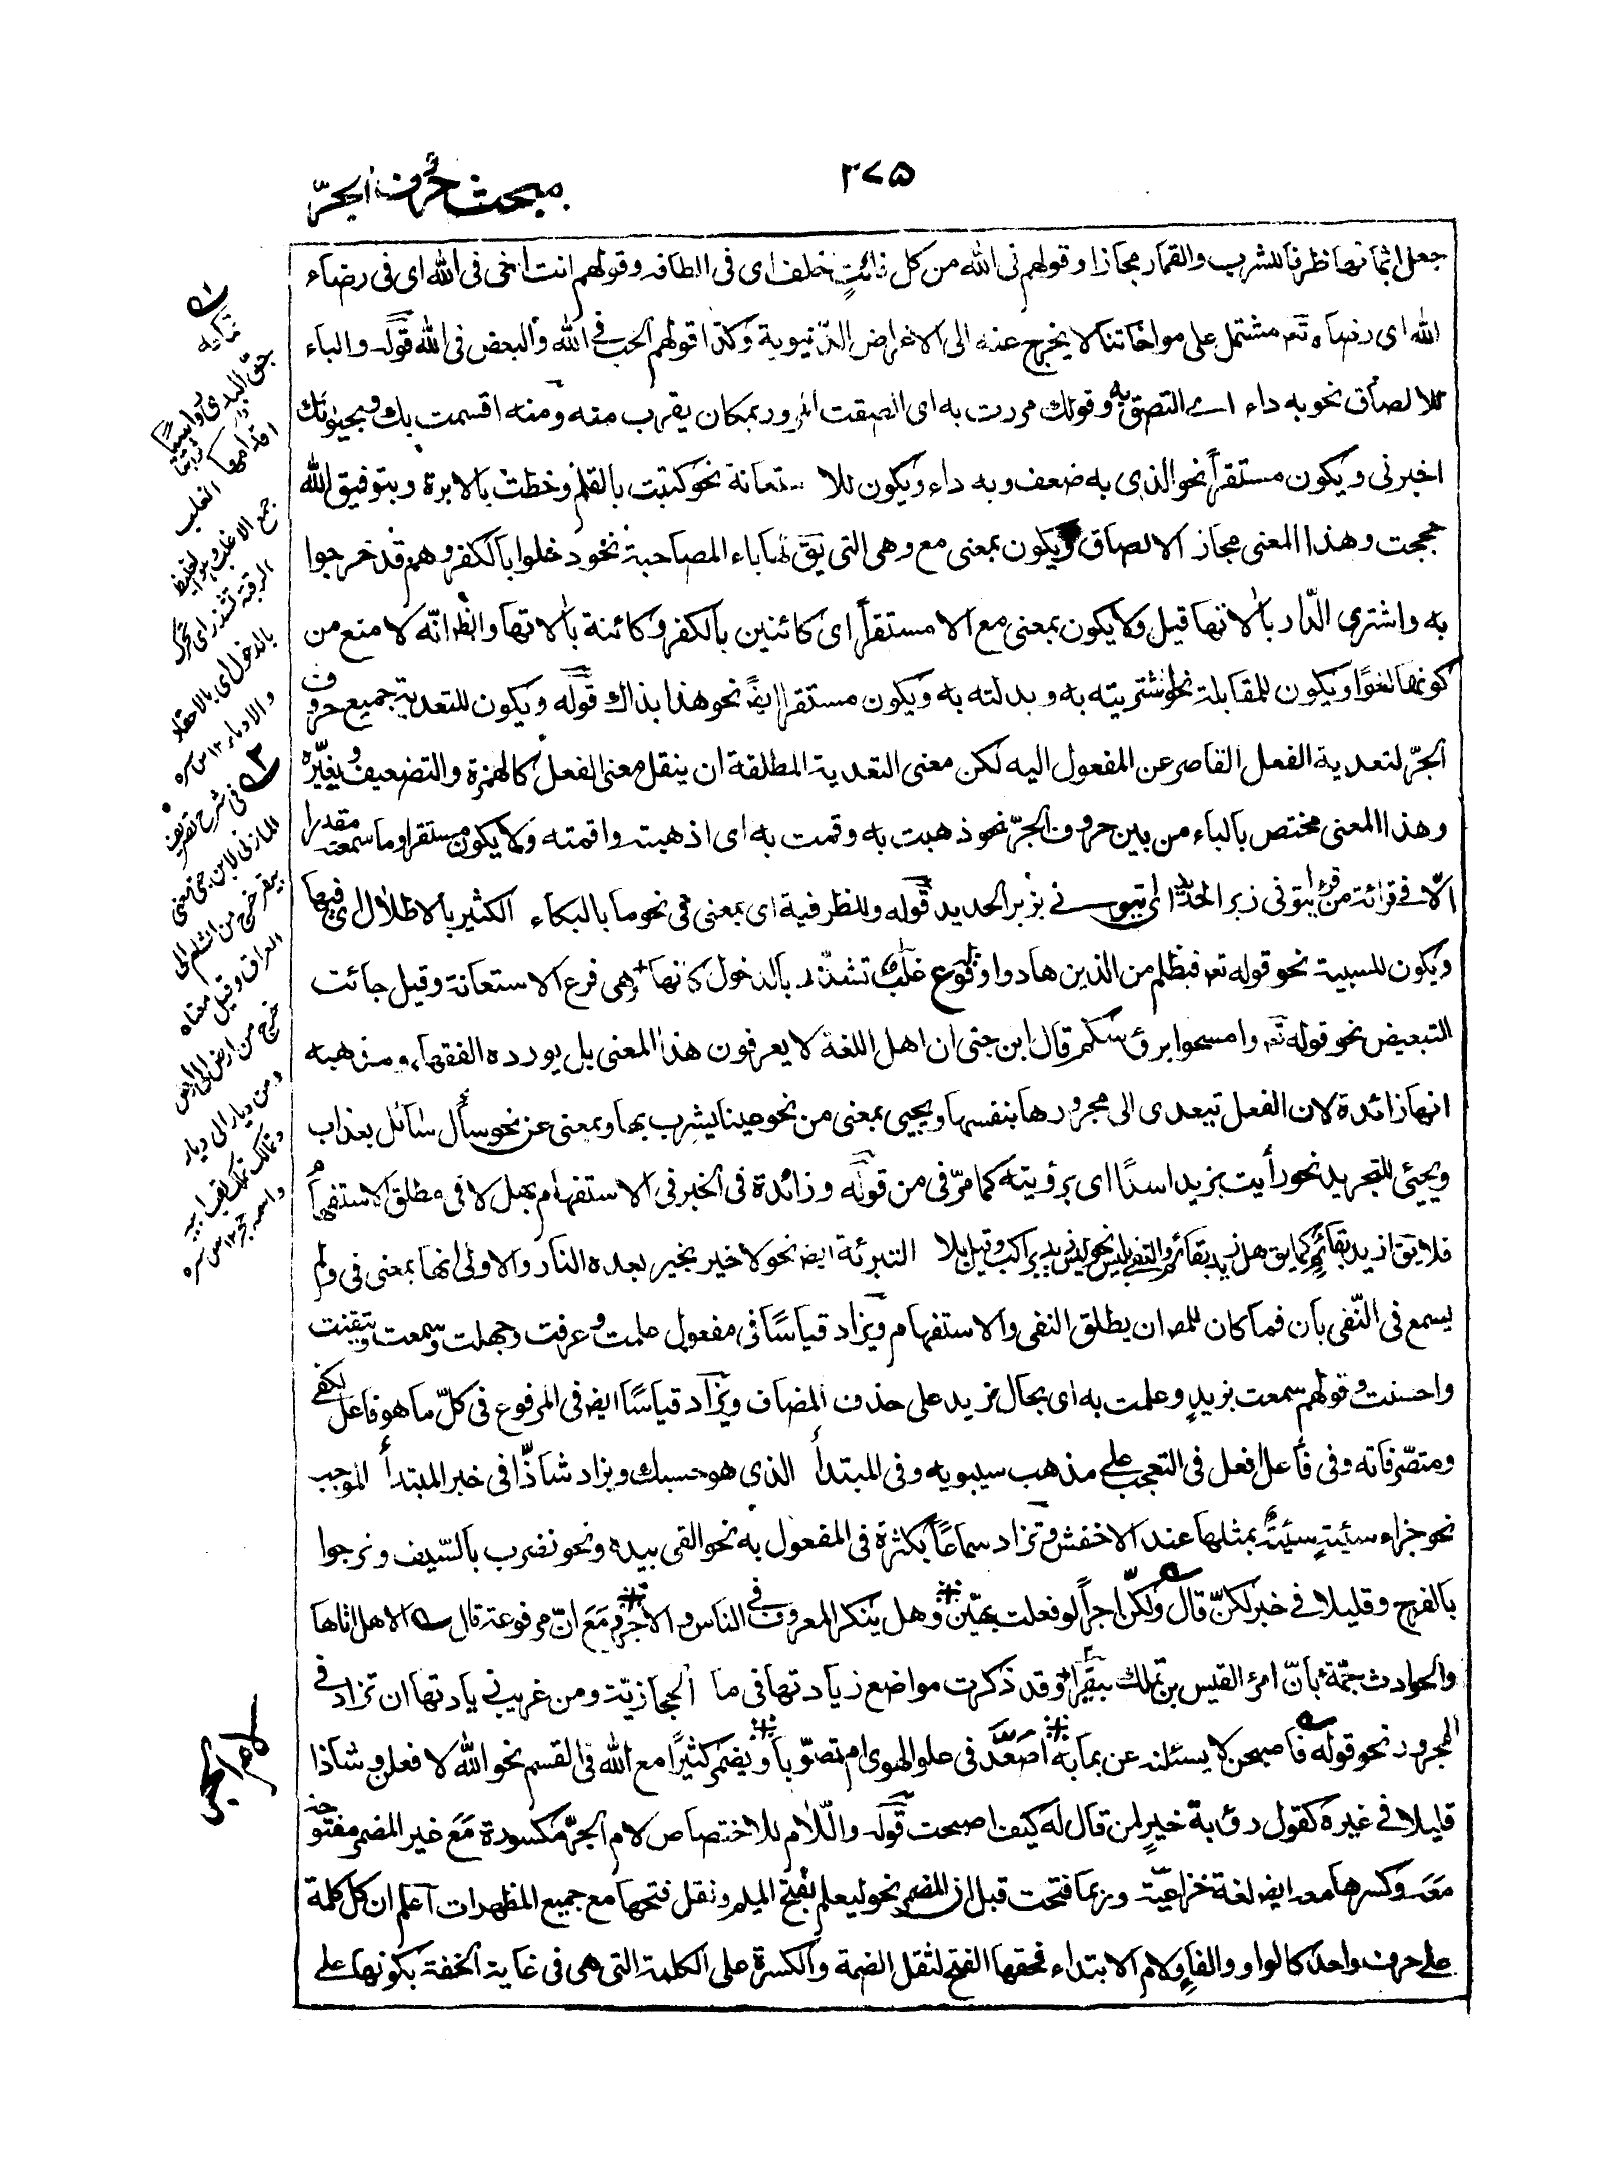 ٣٧٥
مبحث حروف الجرّ
جعل اثمانها ظرفا للشرب والقمار مجازا وقولهم فى الله من كل فائتٍ خلف اى فى الطافه وقولهم انت اخى فى الله اى فى رضاء
الله اى رضاه تعم مشتمل على مواخاتنا لا يخرج عنه الى الاغراض الدّنيوية وكذا قولهم الحب فى الله والبغض فى الله قوله والباء
للالصاق نحو به داء اى التصق به وقولك مررت به اى التصقت المرور بمكان يقرب منه ومنه اقسمت بك وبحيوتك
اخبرنى ويكون مستقراً نحو الذى به ضعف وبه داء ويكون للاستعانة نحو كتبت بالقلم وخطت بالابرة وبتوفيق الله
حججت وهذا المعنى مجاز الالصاق ويكون بمعنى مع وهى التى يق لها باء المصاحبة نحو دخلوا بالكفر وهم قد خرجوا
به واشترى الدّار بالاتها قيل ولا يكون بمعنى مع الا مستقراً اى كائنين بالكفر وكائنة بالاتها والظ انّه لا منع من
كونها لغوًا ويكون للمقابلة نحو اشتريته به وبدلته به ويكون مستقرا ايضً نحو هذا بذاك قوله ويكون للتعدية جميع حروف
الجرّ لتعدية الفعل القاصر عن المفعول اليه لكن معنى التعدية المطلقة ان ينقل معنى الفعل كالهمزة والتضعيف ويغيّره
وهذا المعنى مختص بالباء من بين حروف الجرّ نحو ذهبت به وقمت به اى اذهبته واقمته ولا يكون مستقرا وما سمعته مقدرا
الّا فى قرائة من قرء ايتونى زبر الحديد اى ايتونى بزبر الحديد قوله وللظرفية اى بمعنى فى نحو ما بالبكاء الكثير بالاطلال اى فيها
ويكون للسببية نحو قوله تعم فبظلم من الذين هادوا وقوع غلب تشذّر بالدخول كانها وهى فرع الاستعانة وقيل جائت
التبعيض نحو قوله تعم وامسحوا برؤسكم قال ابن جنى ان اهل اللغة لا يعرفون هذا المعنى بل يورده الفقهاء ومذهبه
انها زائدة لان الفعل تيعدى الى مجرورها بنفسها ويجيى بمعنى من نحو عينا يشرب بها وبمعنى عن نحو سأل سائل بعذاب
ويجيئ للتجريد نحو رأيت بزيد اسدًا اى برؤيته كما مرّ فى من قوله وزائدة فى الخبر فى الاستفهام بهل لا فى مطلق الاستفهام
فلا يق ازيد بقائم كما يق هل زيد بقائم والنفى بليس نحو ليس زيد براكب وقيل بلا التبرئة ايض نحو لا خير بخير بعده النار والاولى انها بمعنى فى ولم
يسمع فى النّفى بان فما كان للمص ان يطلق النفى والاستفهام ويزاد قياسًا فى مفعول علمت وعرفت وجهلت وسمعت وتيقنت
واحسنت وقولهم سمعت بزيدٍ وعلمت به اى بحال زيد على حذف المضاف ويزاد قياسًا ايض فى المرفوع فى كلّ ما هو فاعل لكفى
ومتصّرفاته وفى فاعل افعل فى التعجب على مذهب سيبويه وفى المبتدأ الذى هو حسبك ويزاد شاذّا فى خبر المبتدأ الموجب
نحو جزاء سيئةٍ سيئةٌ بمثلها عند الاخفش وتزاد سماعًا بكثرة فى المفعول به نحو القى بيده ونحو نضرب بالسّيف ونرجوا
بالفرج وقليلا فى خبر لكنّ قال ولكنّ اجراً لو فعلت بهيّن وهل ينكر المعروف فى الناس والاجر ومَعَ انّ مرفوعة قال الا هل اتاها
والحوادث جمّة بانّ امرئ القيس بن تملك بيقرا وقد ذكرت مواضع زيادتها فى ما الحجازيّة ومن غريب زيادتها ان تزاد فى
المجرور نحو قوله فاصبحن لا يسئلنه عن بما به اصعّد فى علو الهوى ام تصوّبا ويضمر كثيرًا مع الله فى القسم نحو الله لا فعلن وشاذا
قليلا فى غيره كقول رؤبة خيرٍ لمن قال له كيف اصبحت قوله واللّام للاختصاص لام الجرّ مكسورة مَعَ غير المضمر مفتوحة
مَعَه وكسرها معه ايض لغة خزاعيّة وربما فتحت قبل ان المضمر نحو ليعلم بفتح الميلم ونقل فتحها مع جميع المظهرات اعلم ان كل كلمة
على حرف واحد كالواو والفاء ولام الابتداء فحقها الفتح لثقل الضمة والكسرة على الكلمة التى هى فى غاية الخفة بكونها على
جن البدى رواسيًا
اقدامها
الغلب
جمع الاغلب وهو الغليظ
الرقبة تشذر اى تحرك
بالدخول اى بالاحقاد
فى شرح تصريف
المازنى لابن جنى معنى
بيقر خرج من الشام الى
العراق وقيل معناه
خرج من ارض الى ارض
ومن ديار الى ديار
لام الجر